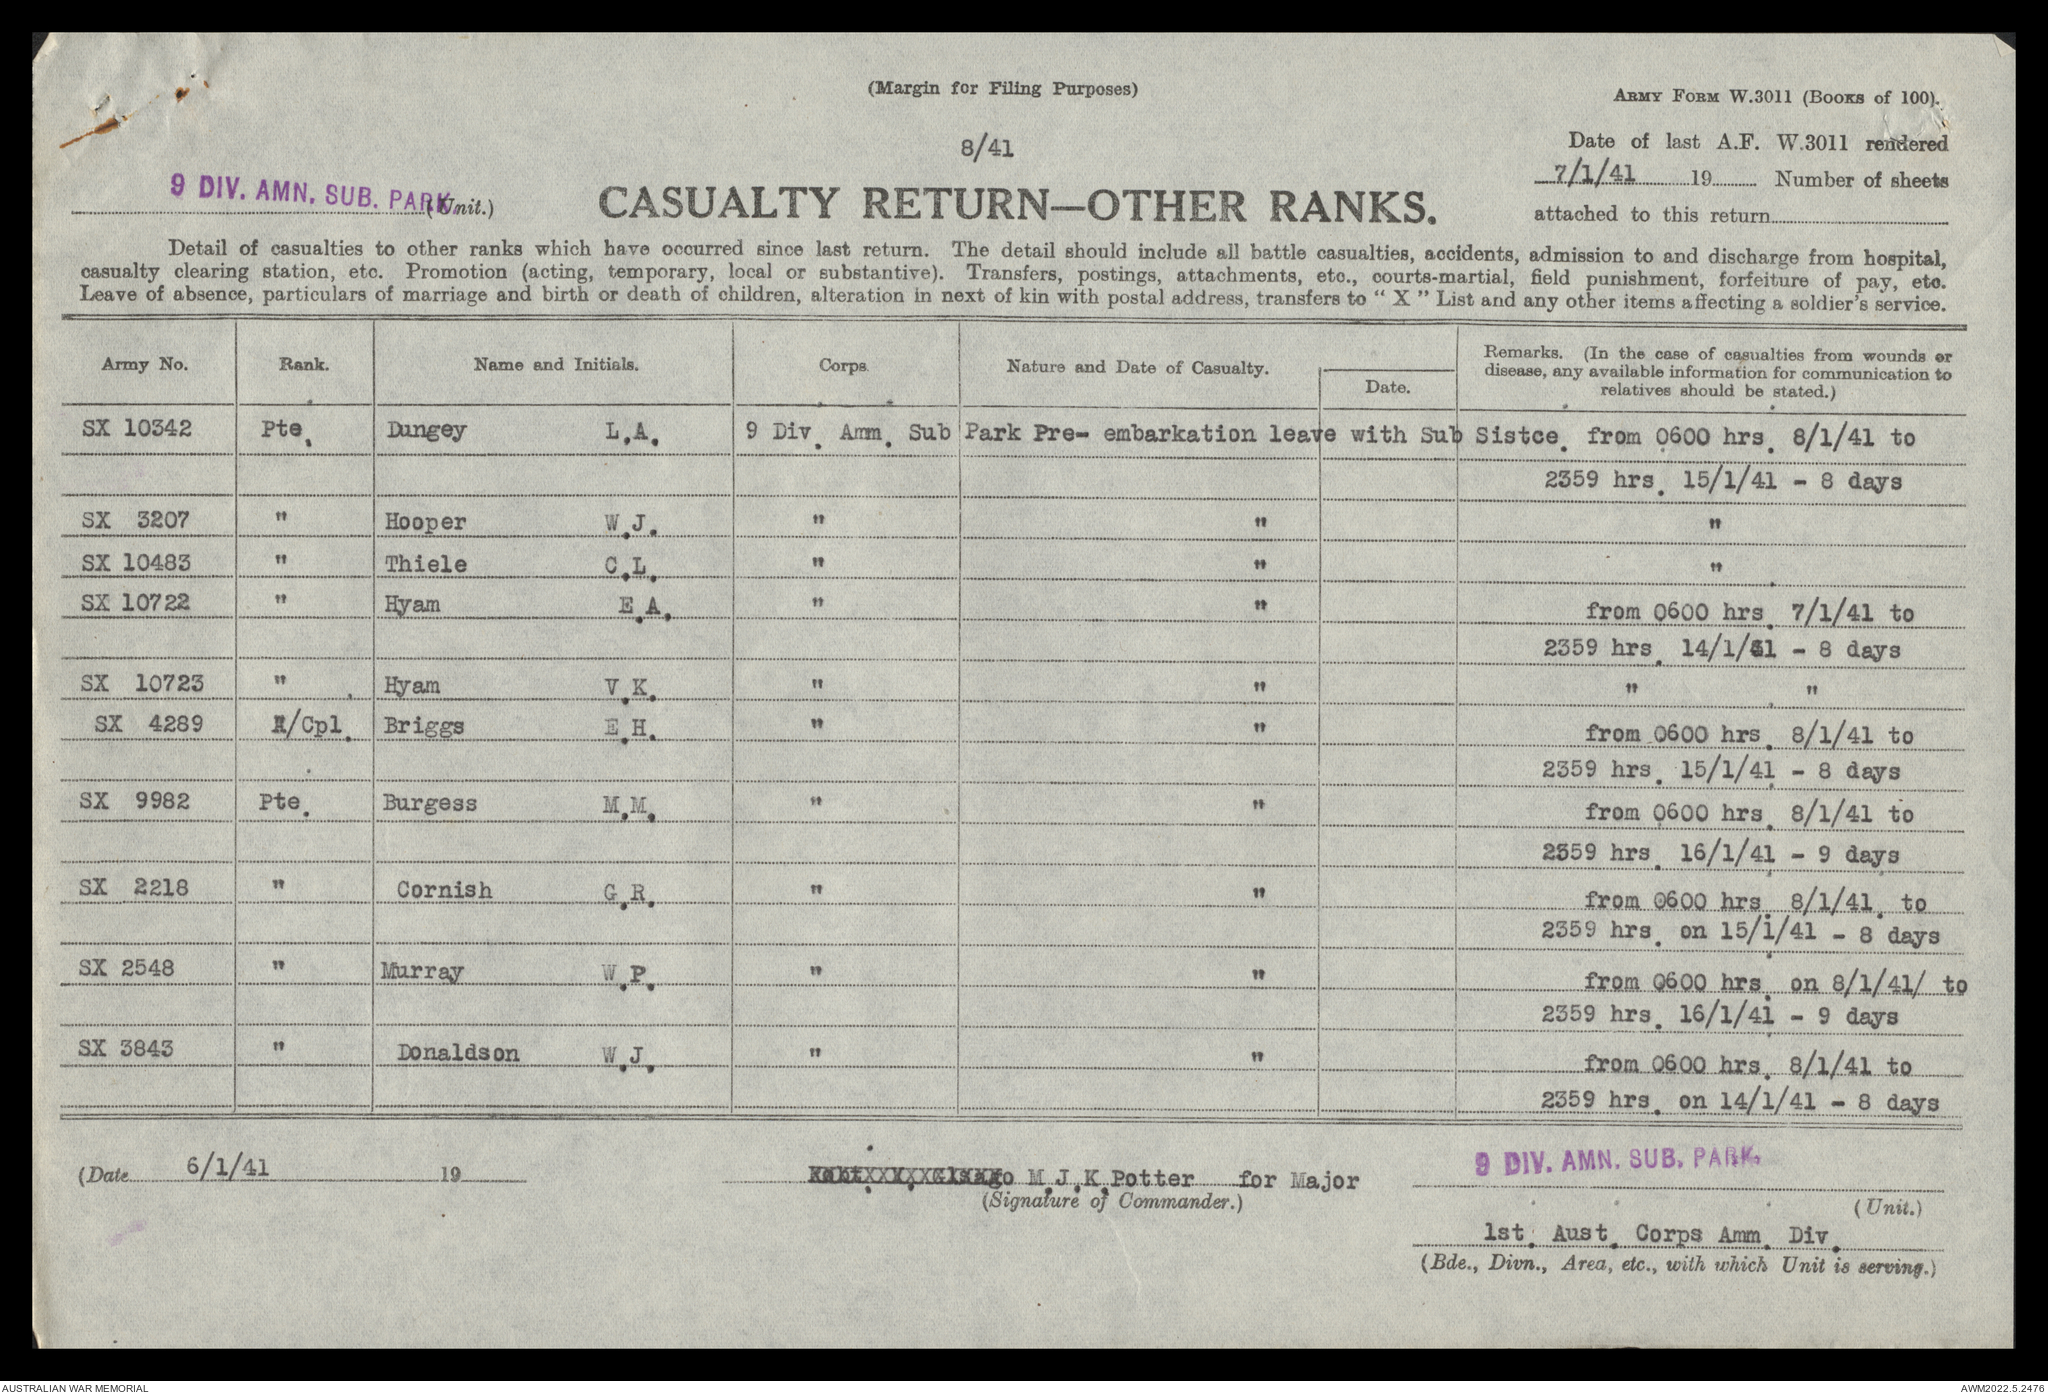 (Margin for Filing Purposes)
ARMY FORM W.3011 (BOOKS of 100).
8/41
Date of last A.F. W.3011 rendered
7/1/41 19 Number of sheets
attached to this return
9 DIV. AMN. SUB. PARK. (Unit.)
CASUALTY RETURN—OTHER RANKS.
Detail of casualties to other ranks which have occurred since last return. The detail should include all battle casualties, accidents, admission to and discharge from hospital,
casualty clearing station, etc. Promotion (acting, temporary, local or substantive). Transfers, postings, attachments, etc., courts-martial, field punishment, forfeiture of pay, etc.
Leave of absence, particulars of marriage and birth or death of children, alteration in next of kin with postal address, transfers to " X " List and any other items affecting a soldier's service.
Army No. Rank. Name and Initials. Corps. Nature and Date of Casualty. Date. Remarks. (In the case of casualties from wounds or
disease, any available information for communication to
relatives should be stated.)
SX 10342 Pte. Dungey L.A. 9 Div. Amm. Sub Park Pre- embarkation leave with Sub Sistce. from 0600 hrs. 8/1/41 to
2359 hrs. 15/1/41 - 8 days
SX 3207 " Hooper W.J. " " "
SX 10483 " Thiele C.L. " " "
SX 10722 " Hyam E.A. " " from 0600 hrs. 7/1/41 to
2359 hrs. 14/1/41 - 8 days
SX 10723 " Hyam V.K. " " " "
SX 4289 /Cpl. Briggs E.H. " " from 0600 hrs. 8/1/41 to
2359 hrs. 15/1/41 - 8 days
SX 9982 Pte. Burgess M.M. " " from 0600 hrs. 8/1/41 to
2359 hrs. 16/1/41 - 9 days
SX 2218 " Cornish G.R. " " from 0600 hrs. 8/1/41. to
2359 hrs. on 15/1/41 - 8 days
SX 2548 " Murray W.P. " " from 0600 hrs. on 8/1/41/ to
2359 hrs. 16/1/41 - 9 days
SX 3843 " Donaldson W.J. " " from 0600 hrs. 8/1/41 to
2359 hrs. on 14/1/41 - 8 days
(Date 6/1/41 19
M.J.K.Potter for Major
(Signature of Commander.)
9 DIV. AMN. SUB. PARK.
(Unit.)
1st. Aust. Corps Amm. Div.
(Bde., Divn., Area, etc., with which Unit is serving.)
AUSTRALIAN WAR MEMORIAL
AWM2022.5.2476